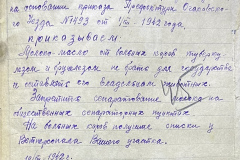 на основании приказа Прокуратуры Осановского
Райзо №1493 от 1/VII 1942 года,
приказываем:
Молоко-масло от больных коров туберку-
лезом и бруцелезом не брать для государства
и оставлять его владельцам животных.
Запретить сепарирование молока на
общественных сепараторных пунктах.
На больных коров получить списки у
Ветперсонала Вашего участка.
1942 г.